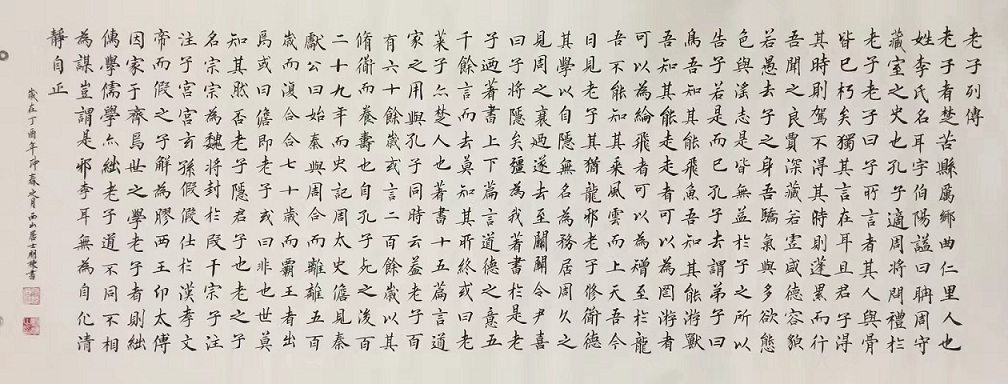 老子列傳
老子者楚苦縣厲鄉曲仁里人也
姓李氏名耳字伯陽謚曰聃周守
藏室之史也孔子適周將問禮於
老子老子曰子所言者其人與骨
皆已朽矣獨其言在耳且君子得
其時則駕不得其時則蓬累而行
吾聞之良賈深藏若虛盛德容貌
若愚去子之身吾驕氣與多欲態
色與淫志是皆無益於子之所以
告子若是而已孔子去謂弟子曰
鳥吾知其能飛魚吾知其能游獸
吾知其能走走者可以為罔游者
可以為綸飛者可以為矰至於龍
吾不能知其乘風雲而上天吾今
日見老子其猶龍邪老子脩道德
其學以自隱無名為務居周久之
見周之衰迺遂去至關關令尹喜
曰子將隱矣彊為我著書於是老
子迺著書上下篇言道德之意五
千餘言而去莫知其所終或曰老
萊子亦楚人也著書十五篇言道
家之用與孔子同時云蓋老子百
有六十餘歲或言二百餘歲以其
脩道而養壽也自孔子死之後百
二十九年而史記周太史儋見秦
獻公曰始秦與周合而離離五百
歲而復合合七十歲而霸王者出
焉或曰儋即老子或曰非也世莫
知其然否老子隱君子也老之子
名宗宗為魏將封於段干宗子注
注子宮宮玄孫假假仕於漢孝文
帝而假之子解為膠西王卬太傅
因家于齊焉世之學老子者則絀
儒學儒學亦絀老子道不同不相
為謀豈謂是邪李耳無為自化清
靜自正
歲在丁酉年仲春之月西山居士書